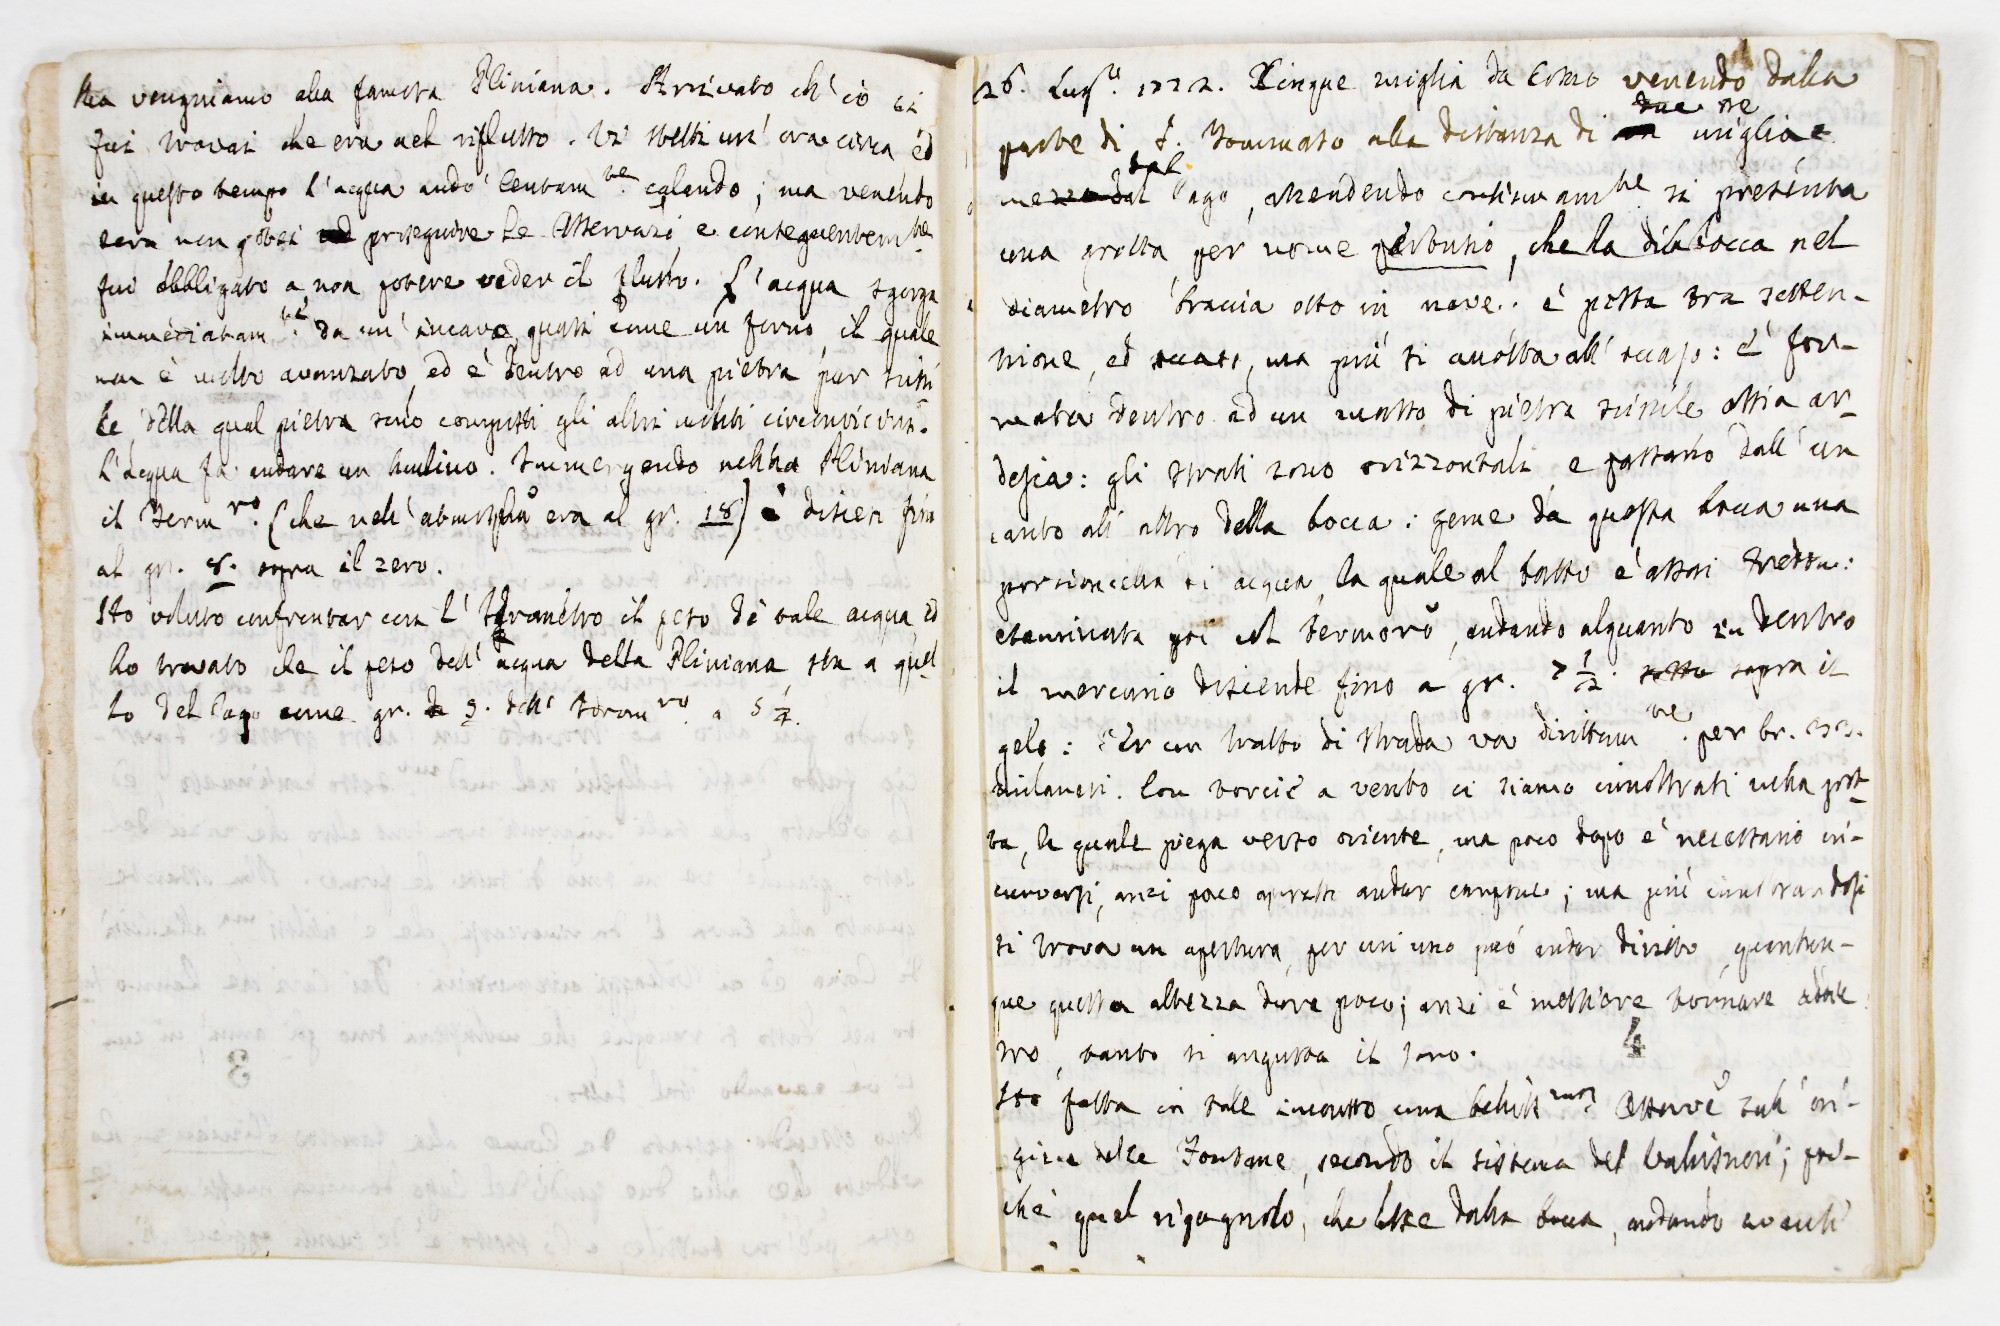 Ma vengniamo alla famosa Pliniana. Arrivato ch' io ci
fui trovai che era nel riflusso. Vi stetti un' ora circa ed
in questo tempo l' acqua andò lentam.te calando; ma venendo
sera non potei proseguire le Osservazi. e conseguentem.te
fui obbligato a non potere veder il flusso. L' acqua sgorga
immediatam.te da un' incavo quasi come un forno, il quale
non è molto avanzato, ed è dentro ad una pietra pur simi-
le, della qual pietra sono composti gli altri monti circonvicini.
L' acqua fa andare un Mulino. Immergendo nella Pliniana
il Term.ro (che nell' atmosfera era al gr. 18) è disceso fino
al gr. 8. sopra il zero.
Ho voluto confrontar con l' Idrometro il peso di tale acqua, ed
ho trovato che il peso dell' acqua della Pliniana sta a quel-
lo del Lago come gr. 9. dell' Idrom.ro a 5 1/4.
26. Lug.o 1772. Cinque miglia da Como venendo dalla
parte di S. Tommaso alla distanza di due tre miglia e
dal lago, ascendendo continuam.te si presenta
una grotta per nome pertusio, che la di lei bocca nel
diametro braccia otto in nove. è posta tra setten-
trione, ed occaso, ma più si accosta all' occaso: è for-
mata dentro ad un masso di pietra simile ossia ar-
desia: gli strati sono orizzontali e passano dall' un
canto all' altro della bocca: geme da questa bocca una
porzioncella di acqua, la quale al tatto è assai fredda:
esaminata poi col termoro, andando alquanto in dentro
il mercurio discende fino a gr. 7 1/2. sotto sopra il
gelo: Per un tratto di strada va dirittam.te per br. 33.
milanesi. Con torcie a vento ci siamo innoltrati nella grot-
ta, la quale piega verso oriente, ma poco dopo è necessario in-
curvarsi, anzi poco appresso andar carpone; ma più innoltrandosi
si trova un apertura, per cui uno può andar diritto, quantun-
que questa altezza dura poco; anzi è mestiere tornare addie
tro, tanto si angusta il foro.
4
Ho fatta in tale incontro una bellissma Osserve sull' ori-
gine delle Fontane, secondo il sistema del Valisneri; poi-
chè quel rigagnolo, che esce dalla bocca, andando avanti